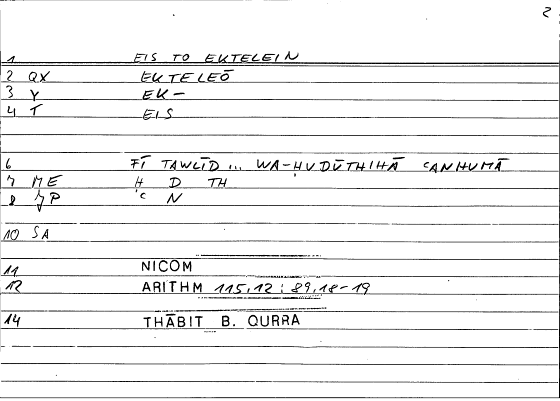 2
1 EIS TO EKTELEIN
2 QX EKTELEŌ
3 Y EK-
4 T EIS
6 FĪ TAWLĪD ... WA-ḤUDŪTHIHĀ ʿANHUMĀ
7 ME Ḥ D TH
8 JP ʿ N
10 SA
11 NICOM
12 ARITHM 115,12 ; 89,18-19
14 THĀBIT B. QURRA